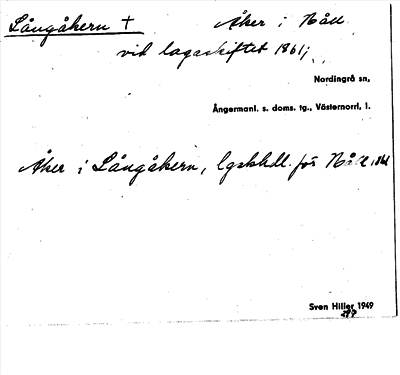 Långåkern + Åker i Nåll
vid lagaskiftet 1861;
Nordingrå sn,
Ångermanl. s. doms. tg., Västernorrl, l.
Åker i Långåkern, lgskhdl. för Nåll 1861
Sven Hiller 1949